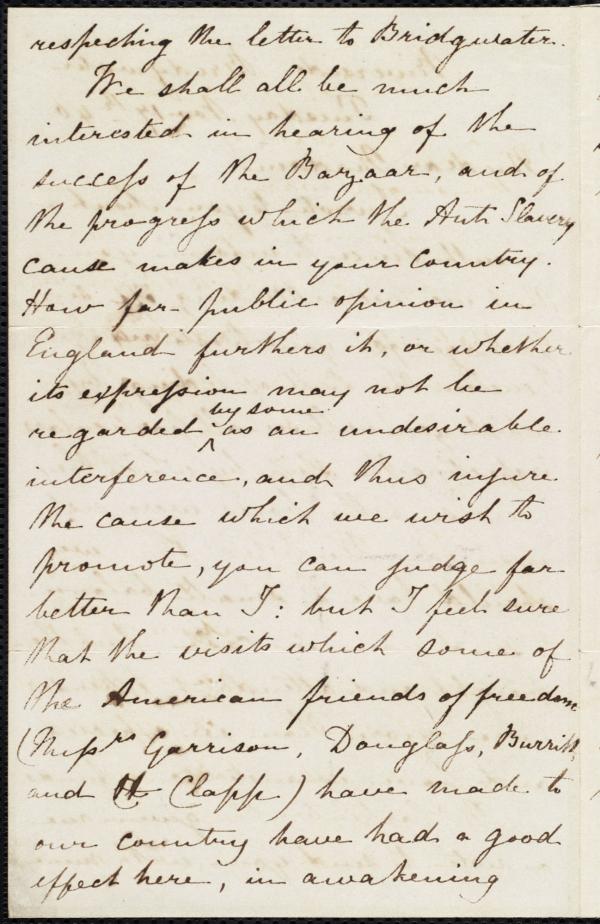 respecting the letter to Bridgwater.
We shall all be much
interested in hearing of the
success of the Bazaar, and of
the progress which the Anti Slavery
cause makes in your Country.
How far public opinion in
England furthers it, or whether
its expression may not be
by some
regarded ^ as an undesirable
interference, and thus injure
the cause which we wish to
promote, you can judge far
better than I: but I feel sure
that the visits which some of
the American friends of freedom
(Messrs Garrison, Douglass, Burritt,
and H Clapp) have made to
our country have had a good
effect here, in awakening